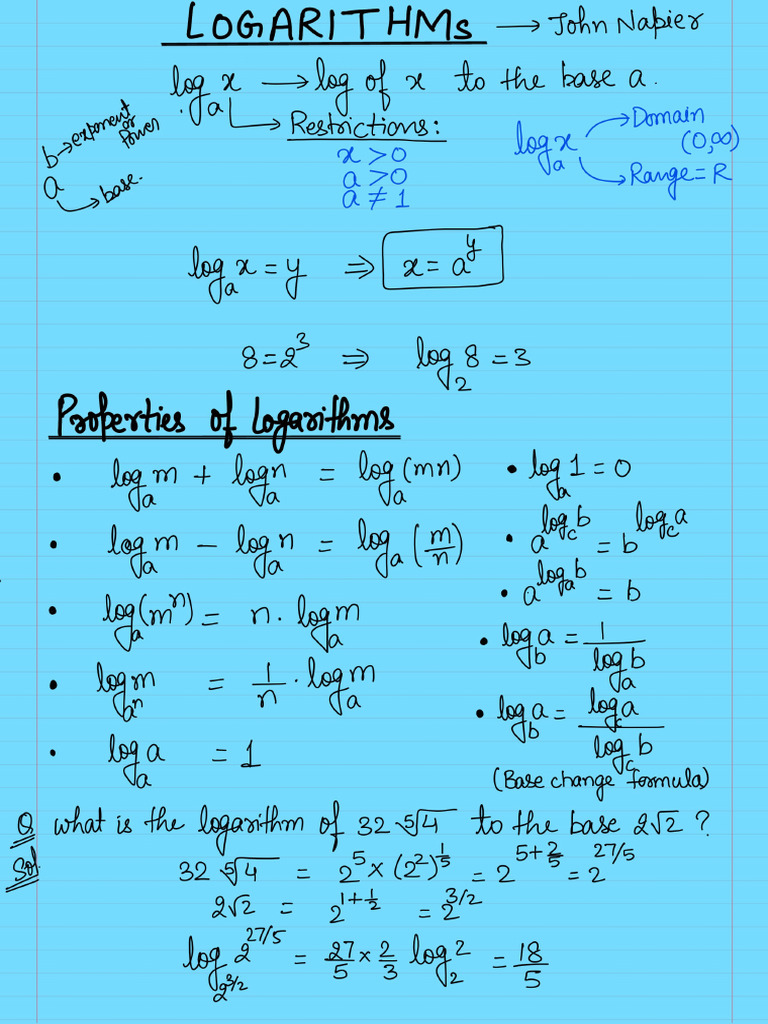 LOGARITHMs → John Napier
log_a x → log of x to the base a.
b → exponent or Power
a → base.
→ Restrictions:
x > 0
a > 0
a ≠ 1
log_a x → Domain (0,∞)
→ Range = R
log_a x = y ⇒ x = a^y
8 = 2^3 ⇒ log_2 8 = 3
Properties of Logarithms
• log_a m + log_a n = log_a (mn)
• log_a m − log_a n = log_a (m/n)
• log_a (m^n) = n · log_a m
• log_{a^n} m = 1/n · log_a m
• log_a a = 1
• log_a 1 = 0
• a^{log_c b} = b^{log_c a}
• a^{log_a b} = b
• log_b a = 1 / log_a b
• log_b a = log_c a / log_c b
(Base change formula)
Q what is the logarithm of 32 ⁵√4 to the base 2√2 ?
Sol. 32 ⁵√4 = 2^5 × (2^2)^{1/5} = 2^{5+2/5} = 2^{27/5}
2√2 = 2^{1+1/2} = 2^{3/2}
log_{2^{3/2}} 2^{27/5} = 27/5 × 2/3 log_2 2 = 18/5